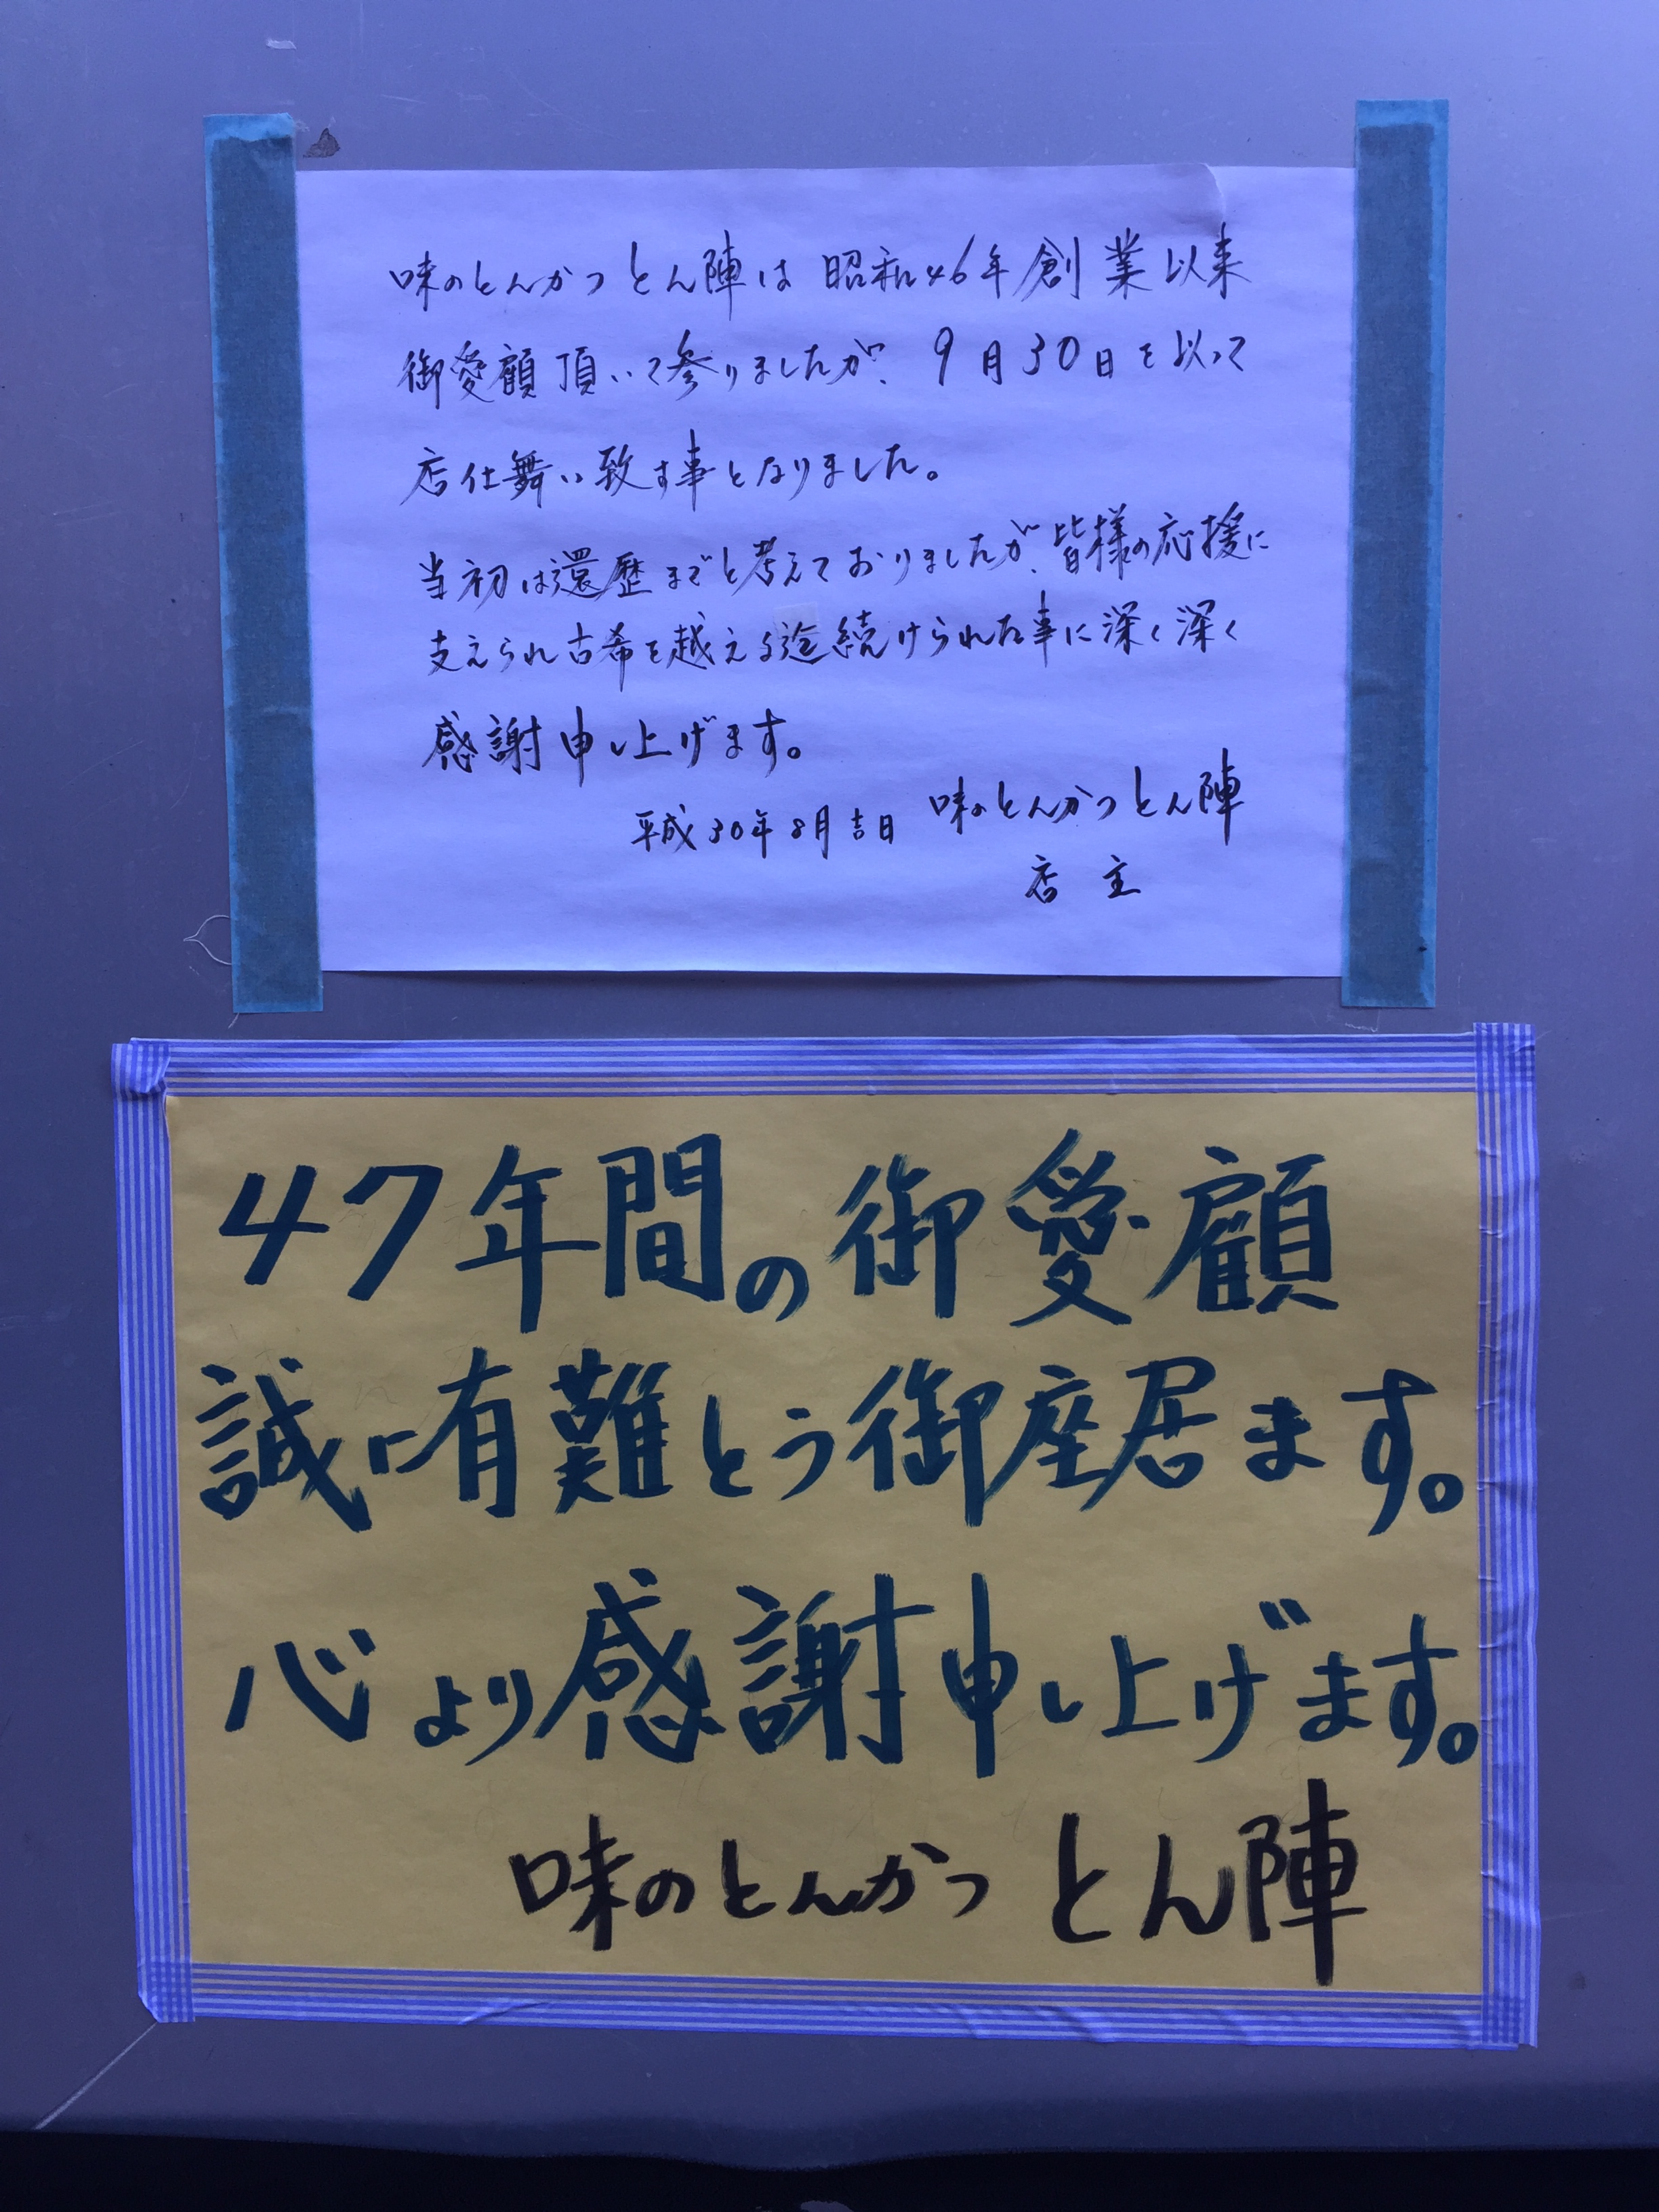 味のとんかつ とん陣は 昭和46年創業以来
御愛顧頂いて参りましたが、9月30日を以って
店仕舞い致す事となりました。
当初は還暦までと考えておりましたが、皆様の応援に
支えられ古希を越える迄続けられた事に深く深く
感謝申し上げます。
平成30年8月吉日 味のとんかつ とん陣
店主
47年間の御愛顧
誠に有難とう御座居ます。
心より感謝申し上げます。
味のとんかつ とん陣